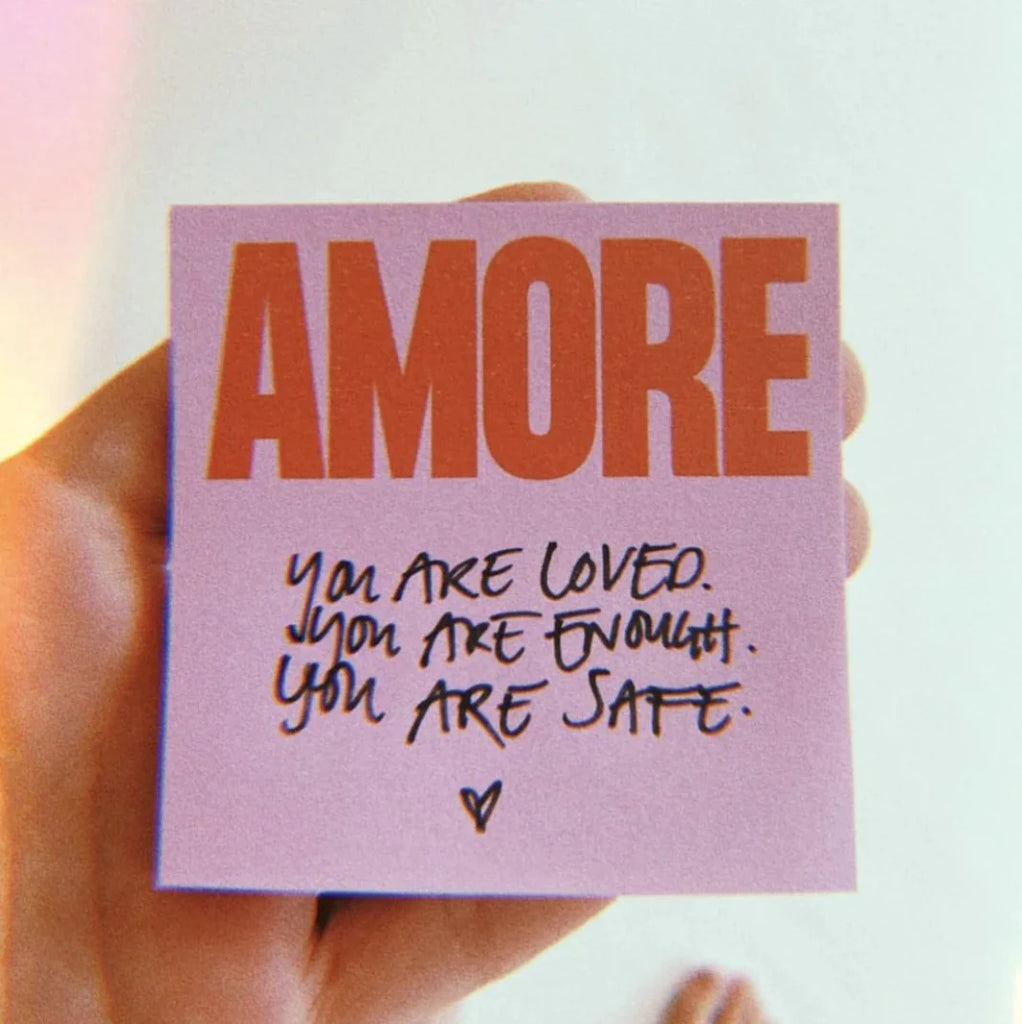 AMORE
YOU ARE LOVED.
YOU ARE ENOUGH.
YOU ARE SAFE.